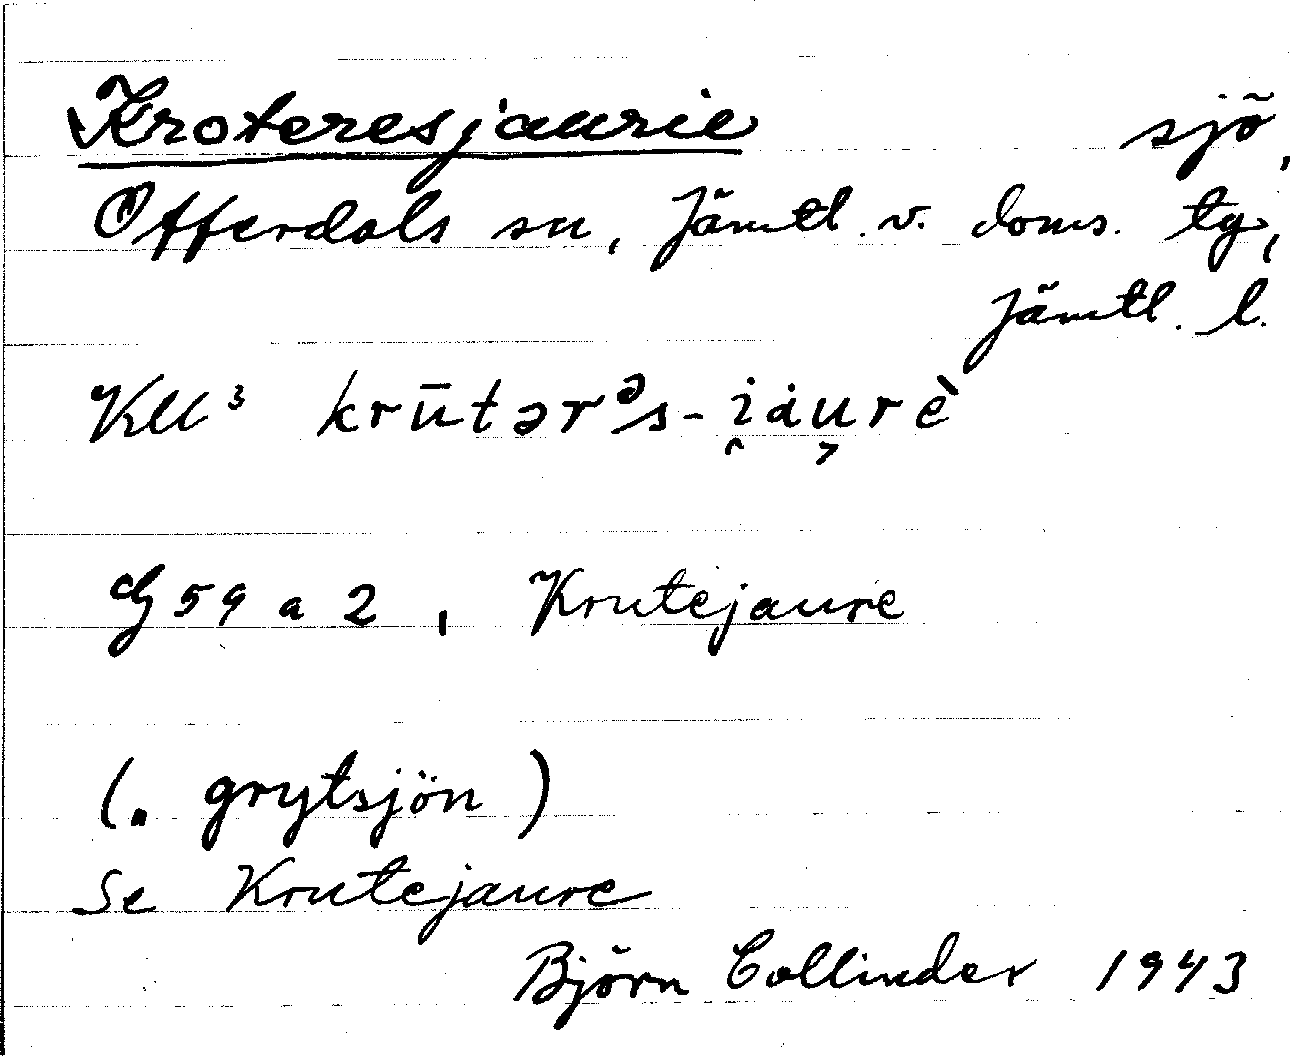 Kroteresjaurie sjö,
Offerdals sn, Jämtl. v. doms. tg,
Jämtl. l.
KM³ krūtərᵊs-i̯ȧu̯rè
G 59 a 2, Krutejaure
(. grytsjön )
Se Krutejaure
Björn Collinder 1943